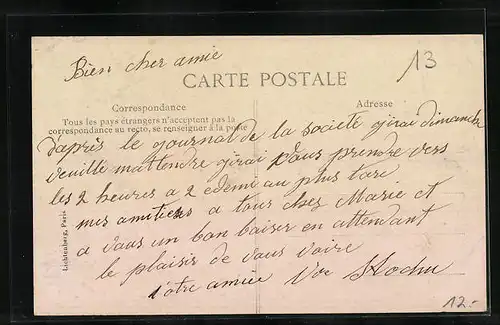 Bien cher amie
13
CARTE POSTALE
Correspondance
Adresse
Tous les pays étrangers n'acceptent pas la
correspondance au recto, se renseigner à la poste
d'apris le gournal de la societé girai dimanche
veuille mattendre girai vous prendre vers
les 2 heures a 2 edemi au plus tare
mes amitiezs a tous chez Marie et
a vous un bon baiser en attendant
le plaisir de vous voire
votre amie
Lichtenberg, Paris
12.-